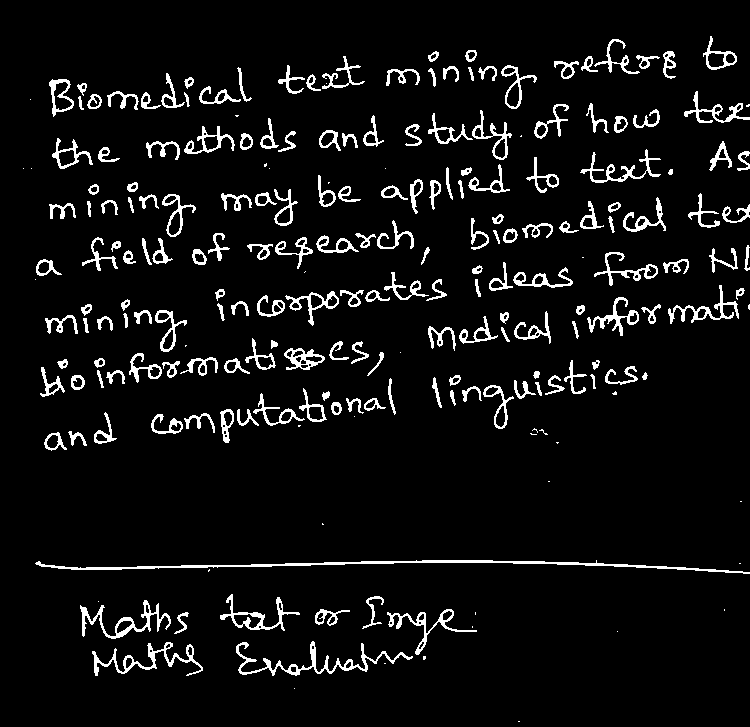 Biomedical text mining refers to
the methods and study of how tex
mining may be applied to text. As
a field of research, biomedical tex
mining incorporates ideas from NL
bioinformatics, medical informati
and computational linguistics.
Maths text or Imge
Maths Evaluatn.